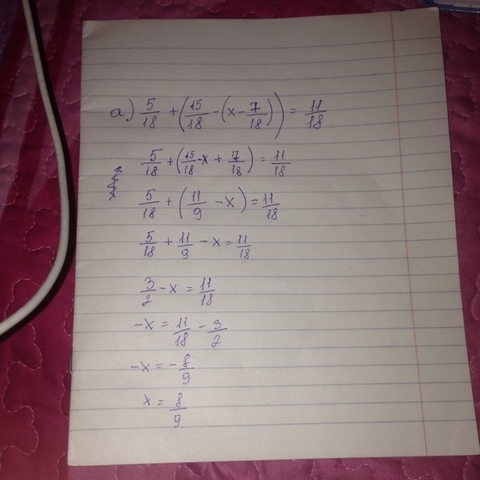 a) 5/18 + (15/18 - (x - 7/18)) = 11/18
5/18 + (15/18 - x + 7/18) = 11/18
5/18 + (11/9 - x) = 11/18
5/18 + 11/9 - x = 11/18
3/2 - x = 11/18
-x = 11/18 - 3/2
-x = - 8/9
x = 8/9